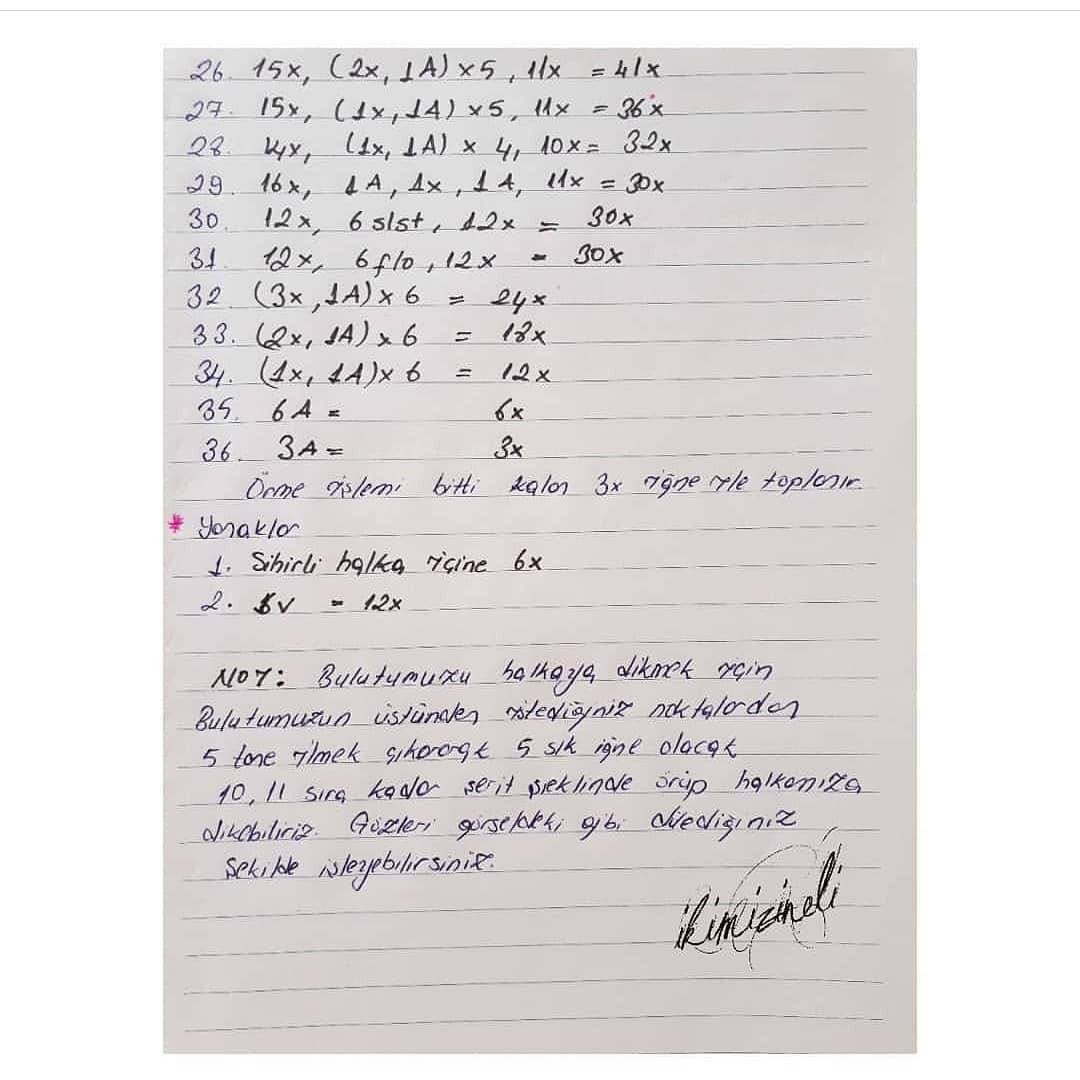 26. 15x, (2x, 1A) x 5, 11x = 41x
27. 15x, (1x, 1A) x 5, 11x = 36x
28. 14x, (1x, 1A) x 4, 10x = 32x
29. 16x, 1A, 1x, 1A, 11x = 30x
30. 12x, 6 slst, 12x = 30x
31. 12x, 6 flo, 12x = 30x
32. (3x, 1A) x 6 = 24x
33. (2x, 1A) x 6 = 18x
34. (1x, 1A) x 6 = 12x
35. 6A = 6x
36. 3A = 3x
Örme işlemi bitti kalan 3x iğne ile toplanır.
* Yanaklar
1. Sihirli halka içine 6x
2. 6V = 12x
NOT: Bulutumuzu halkaya dikmek için
Bulutumuzun üstünden istediğiniz noktalardan
5 tane ilmek çıkararak 5 sık iğne olacak
10, 11 sıra kadar şerit şeklinde örüp halkamıza
dikebiliriz. Gözleri görseldeki gibi dilediğiniz
Şekilde işleyebilirsiniz.
ikimizineli